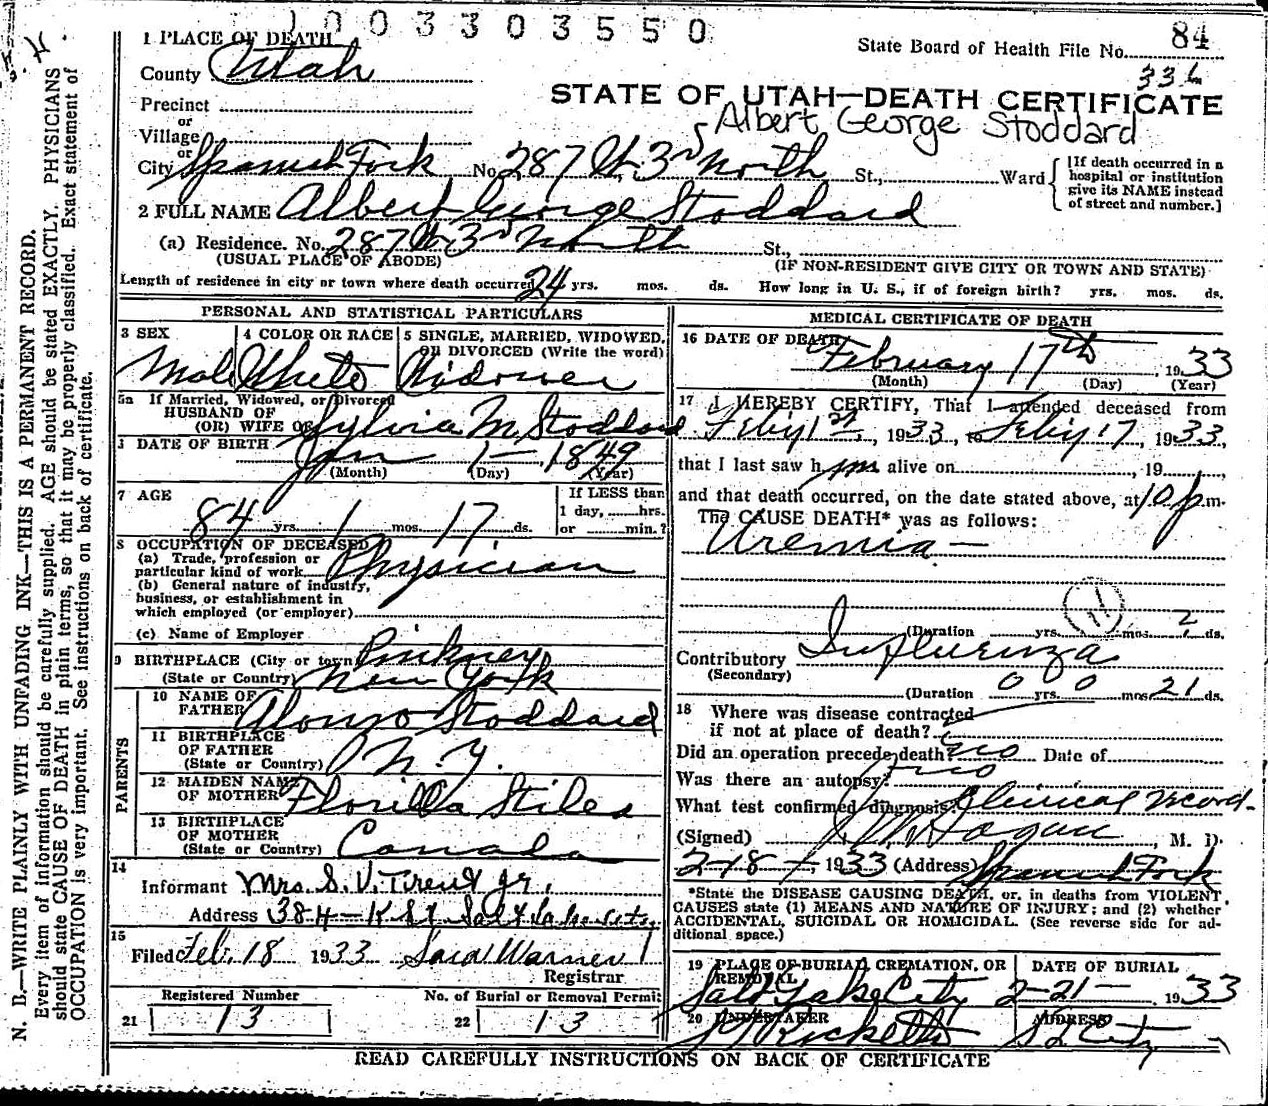 1003303550
1 PLACE OF DEATH
State Board of Health File No. 84
County Utah
336
Precinct
STATE OF UTAH—DEATH CERTIFICATE
or
Village
Albert George Stoddard
or
City Spanish Fork No. 287 W. 3rd North St., Ward
[If death occurred in a hospital or institution give its NAME instead of street and number.]
2 FULL NAME Albert George Stoddard
(a) Residence. No. 287 W 3rd North St.,
(USUAL PLACE OF ABODE) (IF NON-RESIDENT GIVE CITY OR TOWN AND STATE)
Length of residence in city or town where death occurred 24 yrs. mos. ds. How long in U. S., if of foreign birth? yrs. mos. ds.
PERSONAL AND STATISTICAL PARTICULARS
3 SEX
Male
4 COLOR OR RACE
White
5 SINGLE, MARRIED, WIDOWED, OR DIVORCED (Write the word)
Widower
5a If Married, Widowed, or Divorced
HUSBAND OF
(OR) WIFE OF Sylvia M. Stoddard
DATE OF BIRTH Jan 1— 1849
(Month) (Day) (Year)
7 AGE
84 yrs. 1 mos. 17 ds.
If LESS than
1 day, hrs.
or min.?
8 OCCUPATION OF DECEASED
(a) Trade, profession or
particular kind of work Physician
(b) General nature of industry,
business, or establishment in
which employed (or employer)
(c) Name of Employer
9 BIRTHPLACE (City or town) Pinkney
(State or Country) New York
PARENTS
10 NAME OF
FATHER Alonzo Stoddard
11 BIRTHPLACE
OF FATHER
(State or Country) N. Y.
12 MAIDEN NAME
OF MOTHER Florilla Stiles
13 BIRTHPLACE
OF MOTHER
(State or Country) Canada
14
Informant Mrs. S. V. Trent Jr.
Address 384—K St Salt Lake City
15
Filed Feb. 18 1933 Sara Warner
Registrar
Registered Number
21 13
No. of Burial or Removal Permit
22 13
MEDICAL CERTIFICATE OF DEATH
16 DATE OF DEATH
February 17th, 1933
(Month) (Day) (Year)
17 I HEREBY CERTIFY, That I attended deceased from
Feby 1st, 1933, to Feby 17 1933,
that I last saw him alive on, 19
and that death occurred, on the date stated above, at 10 p m.
The CAUSE DEATH* was as follows:
Uremia —
(Duration yrs. mos. 2 ds.
Contributory Influenza
(Secondary)
(Duration 0 yrs. 0 mos 21 ds.
18 Where was disease contracted
if not at place of death?
Did an operation precede death? no Date of
Was there an autopsy? no
What test confirmed diagnosis? Clinical record.
(Signed) Hagan, M. D.
2-18-, 1933 (Address) Spanish Fork
*State the DISEASE CAUSING DEATH, or, in deaths from VIOLENT
CAUSES state (1) MEANS AND NATURE OF INJURY; and (2) whether
ACCIDENTAL, SUICIDAL OR HOMICIDAL. (See reverse side for ad-
ditional space.)
19 PLACE OF BURIAL, CREMATION, OR REMOVAL
Salt Lake City
DATE OF BURIAL
2-21- 1933
20 UNDERTAKER
Ricketts
ADDRESS
S L City
READ CAREFULLY INSTRUCTIONS ON BACK OF CERTIFICATE
N. B.—WRITE PLAINLY WITH UNFADING INK—THIS IS A PERMANENT RECORD.
Every item of information should be carefully supplied. AGE should be stated EXACTLY. PHYSICIANS
should state CAUSE OF DEATH in plain terms, so that it may be properly classified. Exact statement of
OCCUPATION is very important. See instructions on back of certificate.